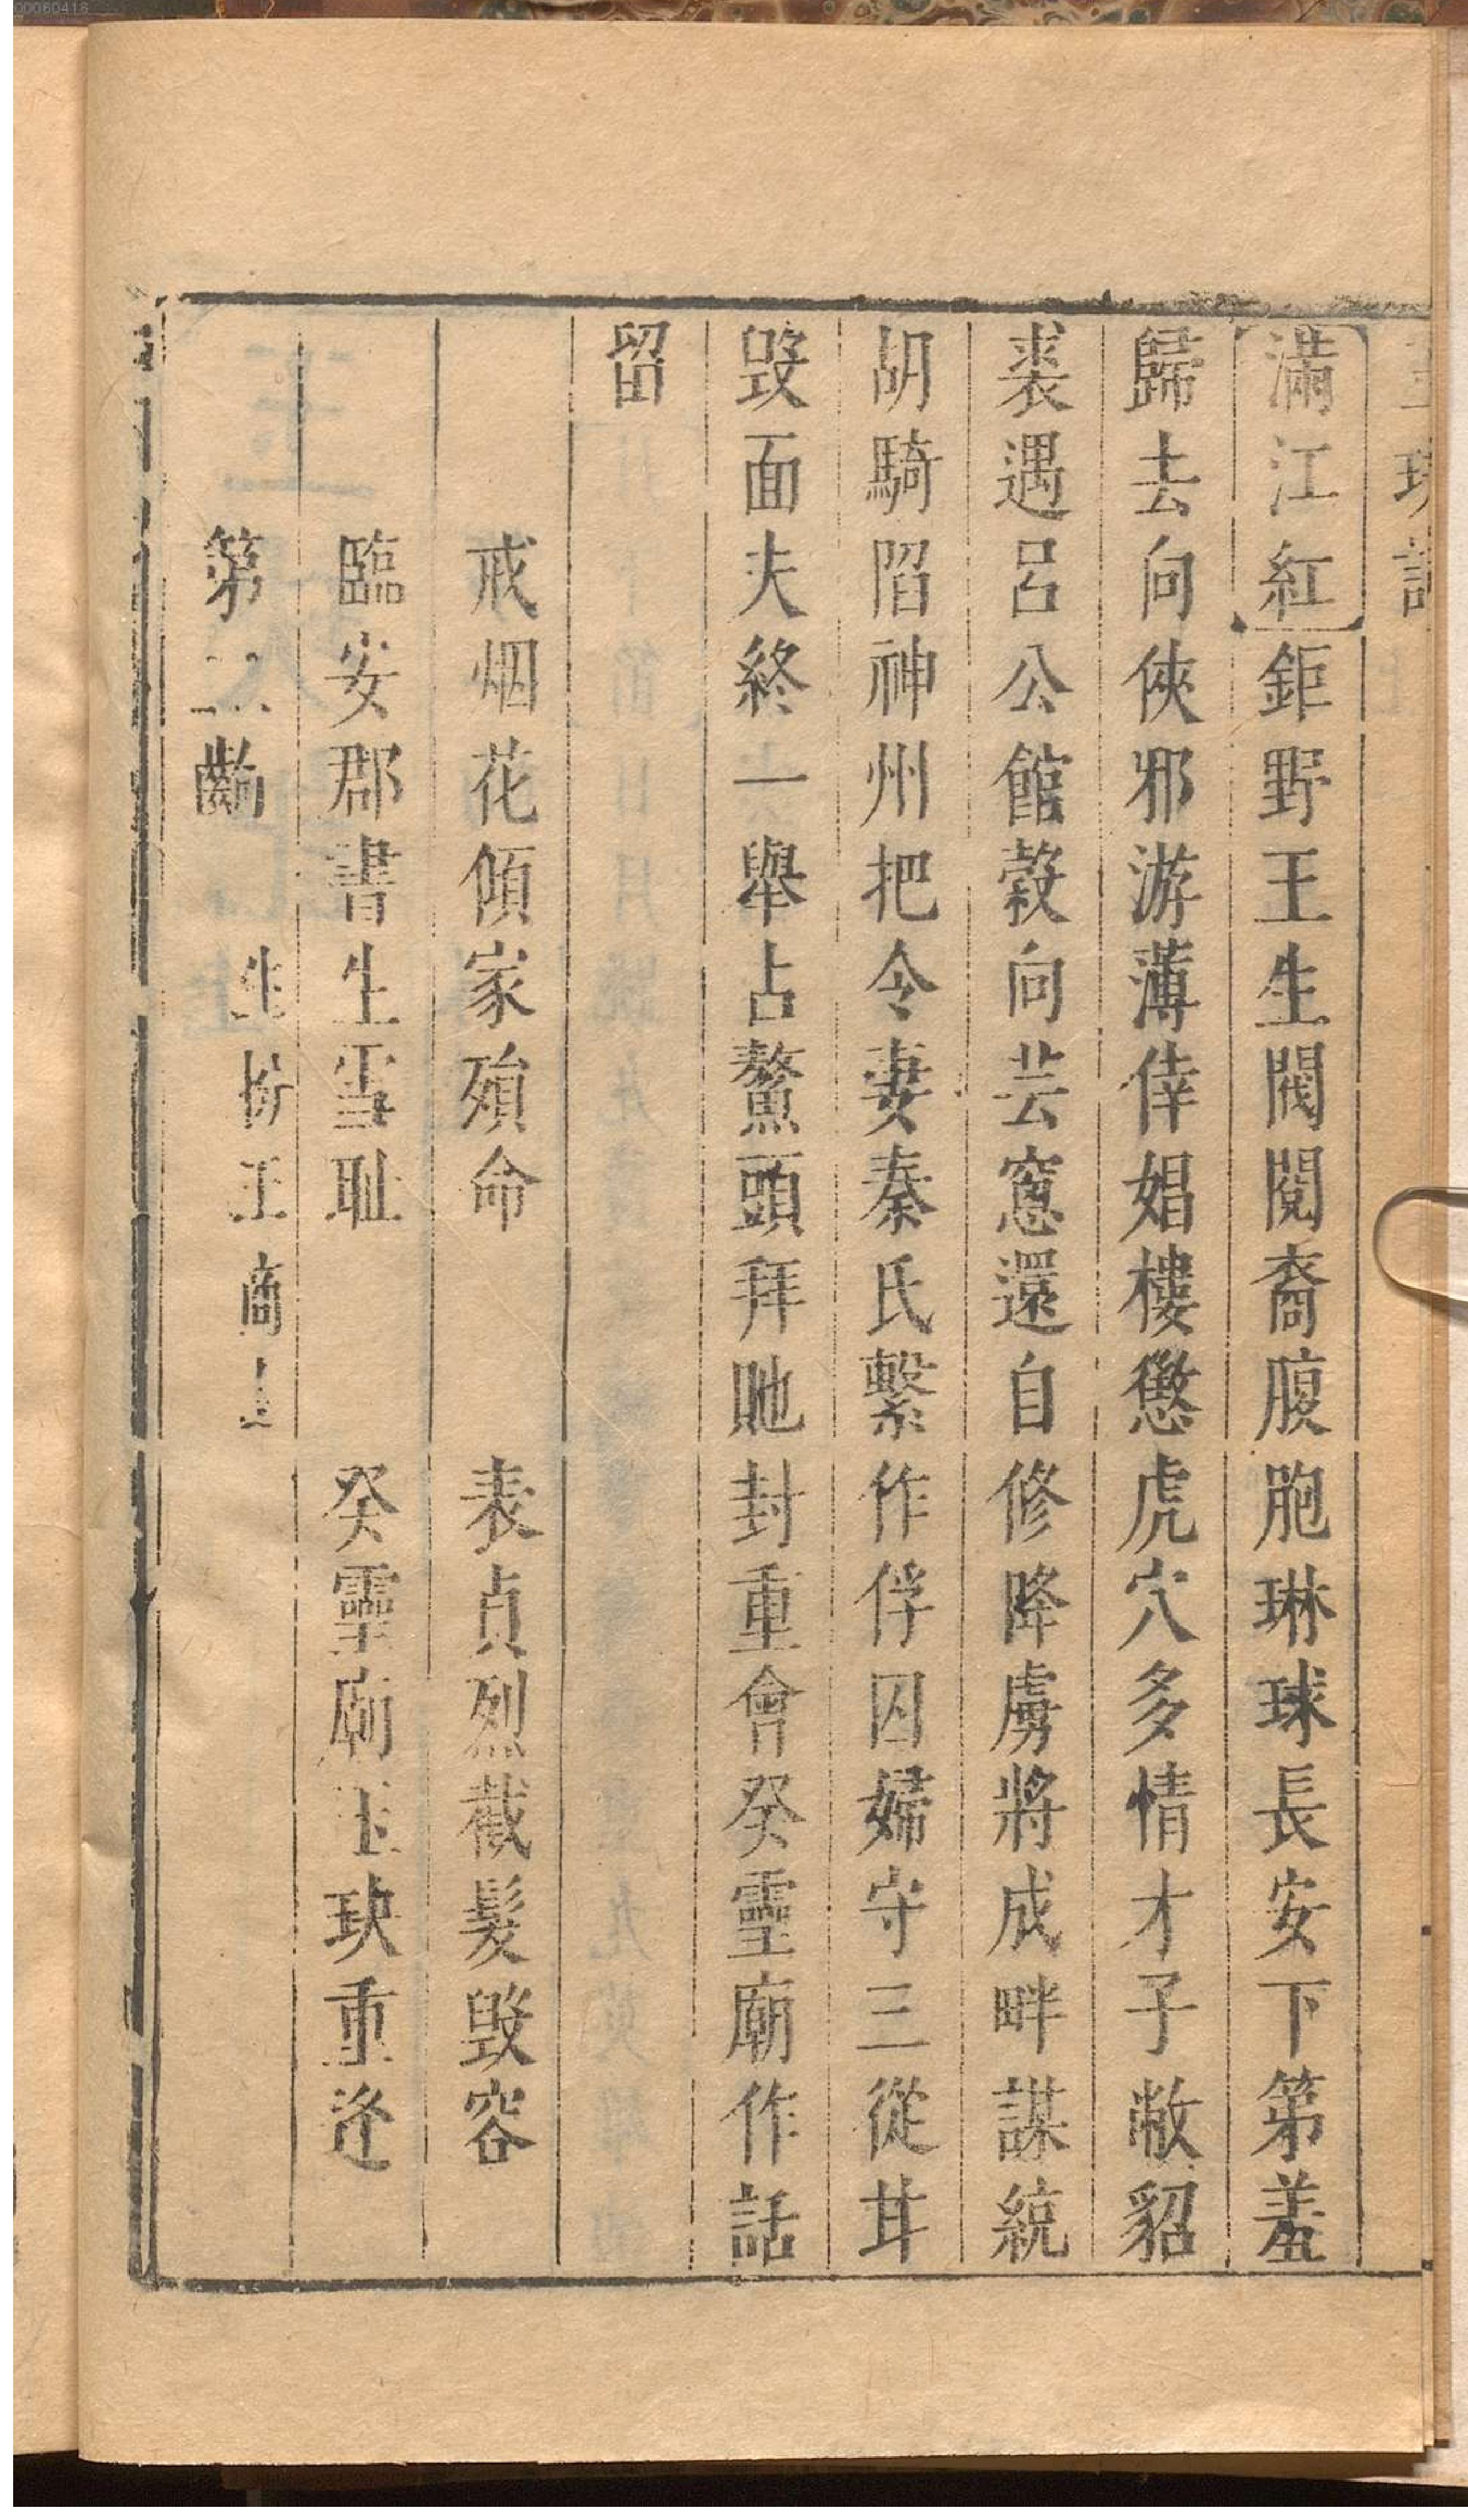 00060418
玦記
滿江紅鉅野王生閥閱裔腹胞琳球長安下第羞
歸去向俠邪游薄倖娼樓懲虎穴多情才子敝貂
裘遇呂公館穀向芸窓還自修降虜將成畔謀統
胡騎陷神州把令妻秦氏繫作俘囚婦守三從甘
毀面夫終一舉占鰲頭拜貤封重會癸靈廟作話
留
戒烟花傾家殞命　表貞烈截髮毀容
臨安郡書生雪耻　癸靈廟玉玦重逢
第二齣　生扮王商上